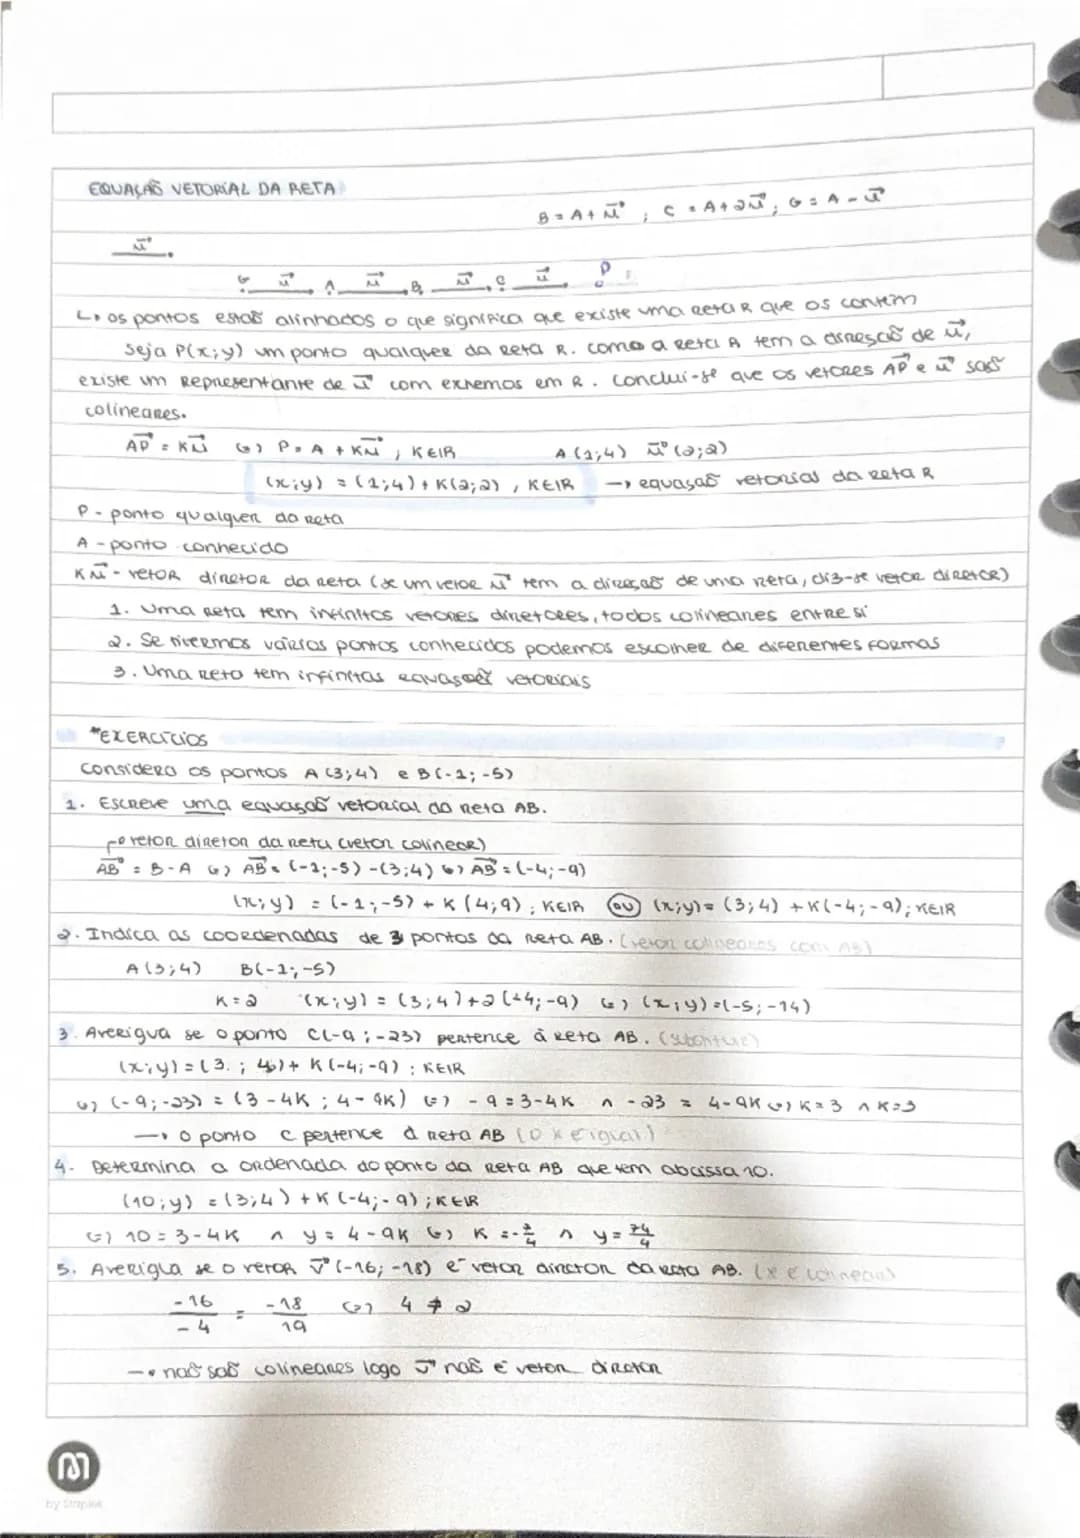 EQUAÇÃO VETORIAL DA RETA
B = A + u⃗ ; C = A + 2u⃗ ; G = A - u⃗
u⃗
G u⃗ A u⃗ B u⃗ C u⃗ P
↳ os pontos estão alinhados o que significa que existe uma reta R que os contêm
Seja P(x;y) um ponto qualquer da reta R. como a reta R tem a direção de u⃗,
existe um representante de u⃗ com exremos em R. Conclui-se que os vetores AP⃗ e u⃗ são
colineares.
AP⃗ = Ku⃗ (=) P = A + Ku⃗ , K∈IR A (1;4) u⃗ (2;2)
(x;y) = (1;4) + K(2;2) , K∈IR → equação vetorial da reta R
P - ponto qualquer da reta
A - ponto conhecido
Ku⃗ - vetor diretor da reta (se um vetor u⃗ tem a direção de uma reta, diz-se vetor diretor)
1. Uma reta tem infinitos vetores diretores, todos colineares entre si
2. Se tivermos vários pontos conhecidos podemos escolher de diferentes formas
3. Uma reta tem infinitas equações vetoriais
*EXERCÍCIOS
Considera os pontos A (3;4) e B(-1;-5)
1. Escreve uma equação vetorial da reta AB.
vetor diretor da reta (vetor colinear)
AB⃗ = B - A (=) AB⃗ = (-1;-5) - (3;4) (=) AB⃗ = (-4;-9)
(x;y) = (-1;-5) + K (4;9) ; K∈IR (OU) (x;y) = (3;4) + K(-4;-9); K∈IR
2. Indica as coordenadas de 3 pontos da reta AB. (vetor colineares com AB)
A (3;4) B(-1;-5)
K = 2 (x;y) = (3;4) + 2 (-4;-9) (=) (x;y) = (-5;-14)
3. Averigua se o ponto C(-9;-23) pertence à reta AB. (substituir)
(x;y) = (3;4) + K(-4;-9) ; K∈IR
(=) (-9;-23) = (3 - 4K ; 4 - 9K) (=) - 9 = 3-4K ∧ -23 = 4-9K (=) K = 3 ∧ K=3
→ o ponto C pertence à reta AB (o K é igual)
4. Determina a ordenada do ponto da reta AB que tem abcissa 10.
(10;y) = (3;4) + K (-4;-9) ; K∈IR
(=) 10 = 3-4K ∧ y = 4-9K (=) K = -7/4 ∧ y = 74/4
5. Averigua se o vetor v⃗ (-16;-18) é vetor diretor da reta AB. (x é colinear)
-16/-4 = -18/19 (=) 4 ≠ 2
→ não são colineares logo v⃗ não é vetor diretor
by Staples